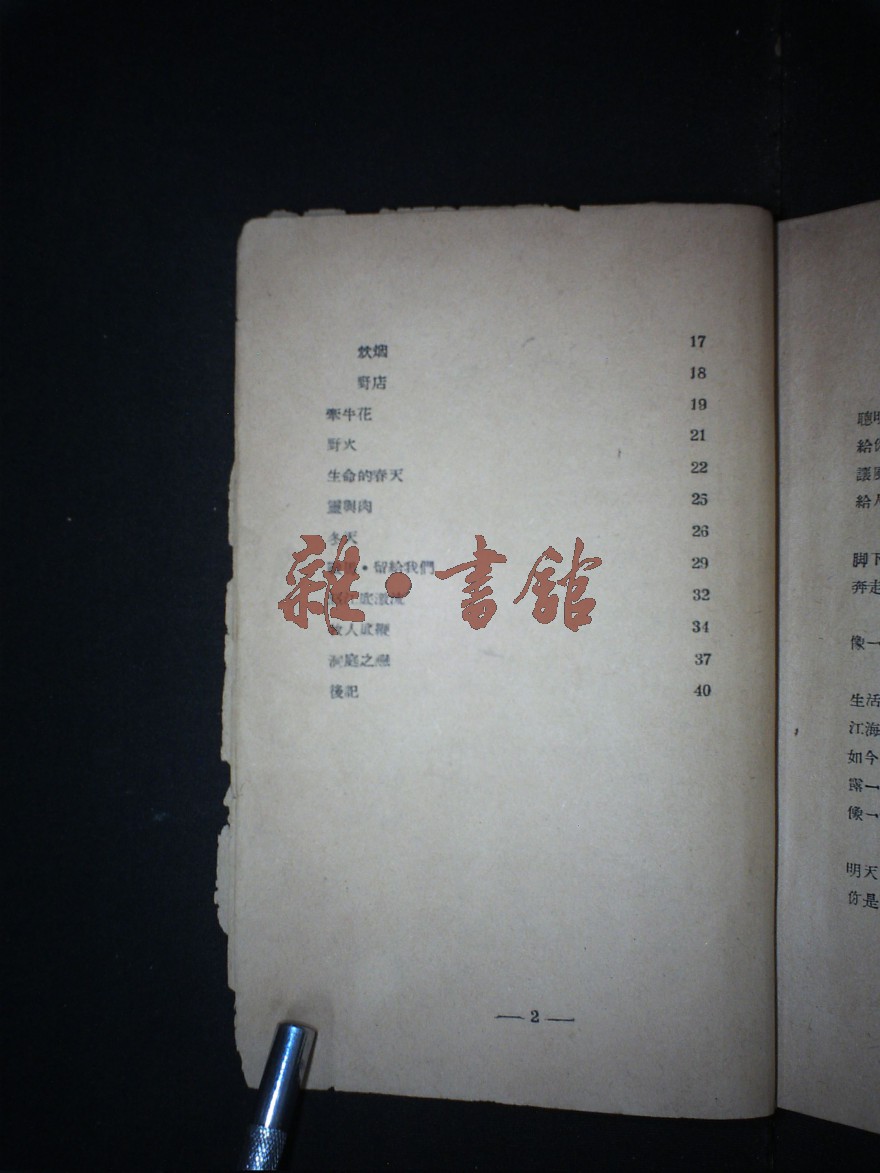 炊烟 17
野店 18
牽牛花 19
野火 21
生命的春天 22
靈與肉 25
冬天 26
・留給我們 29
32
人 鞭 34
洞庭之戀 37
後記 40
— 2 —
雜・書館
聰明
給你
讓
給
脚下
奔走
像一
生活
江海
如今
露一
像一
明天
你是